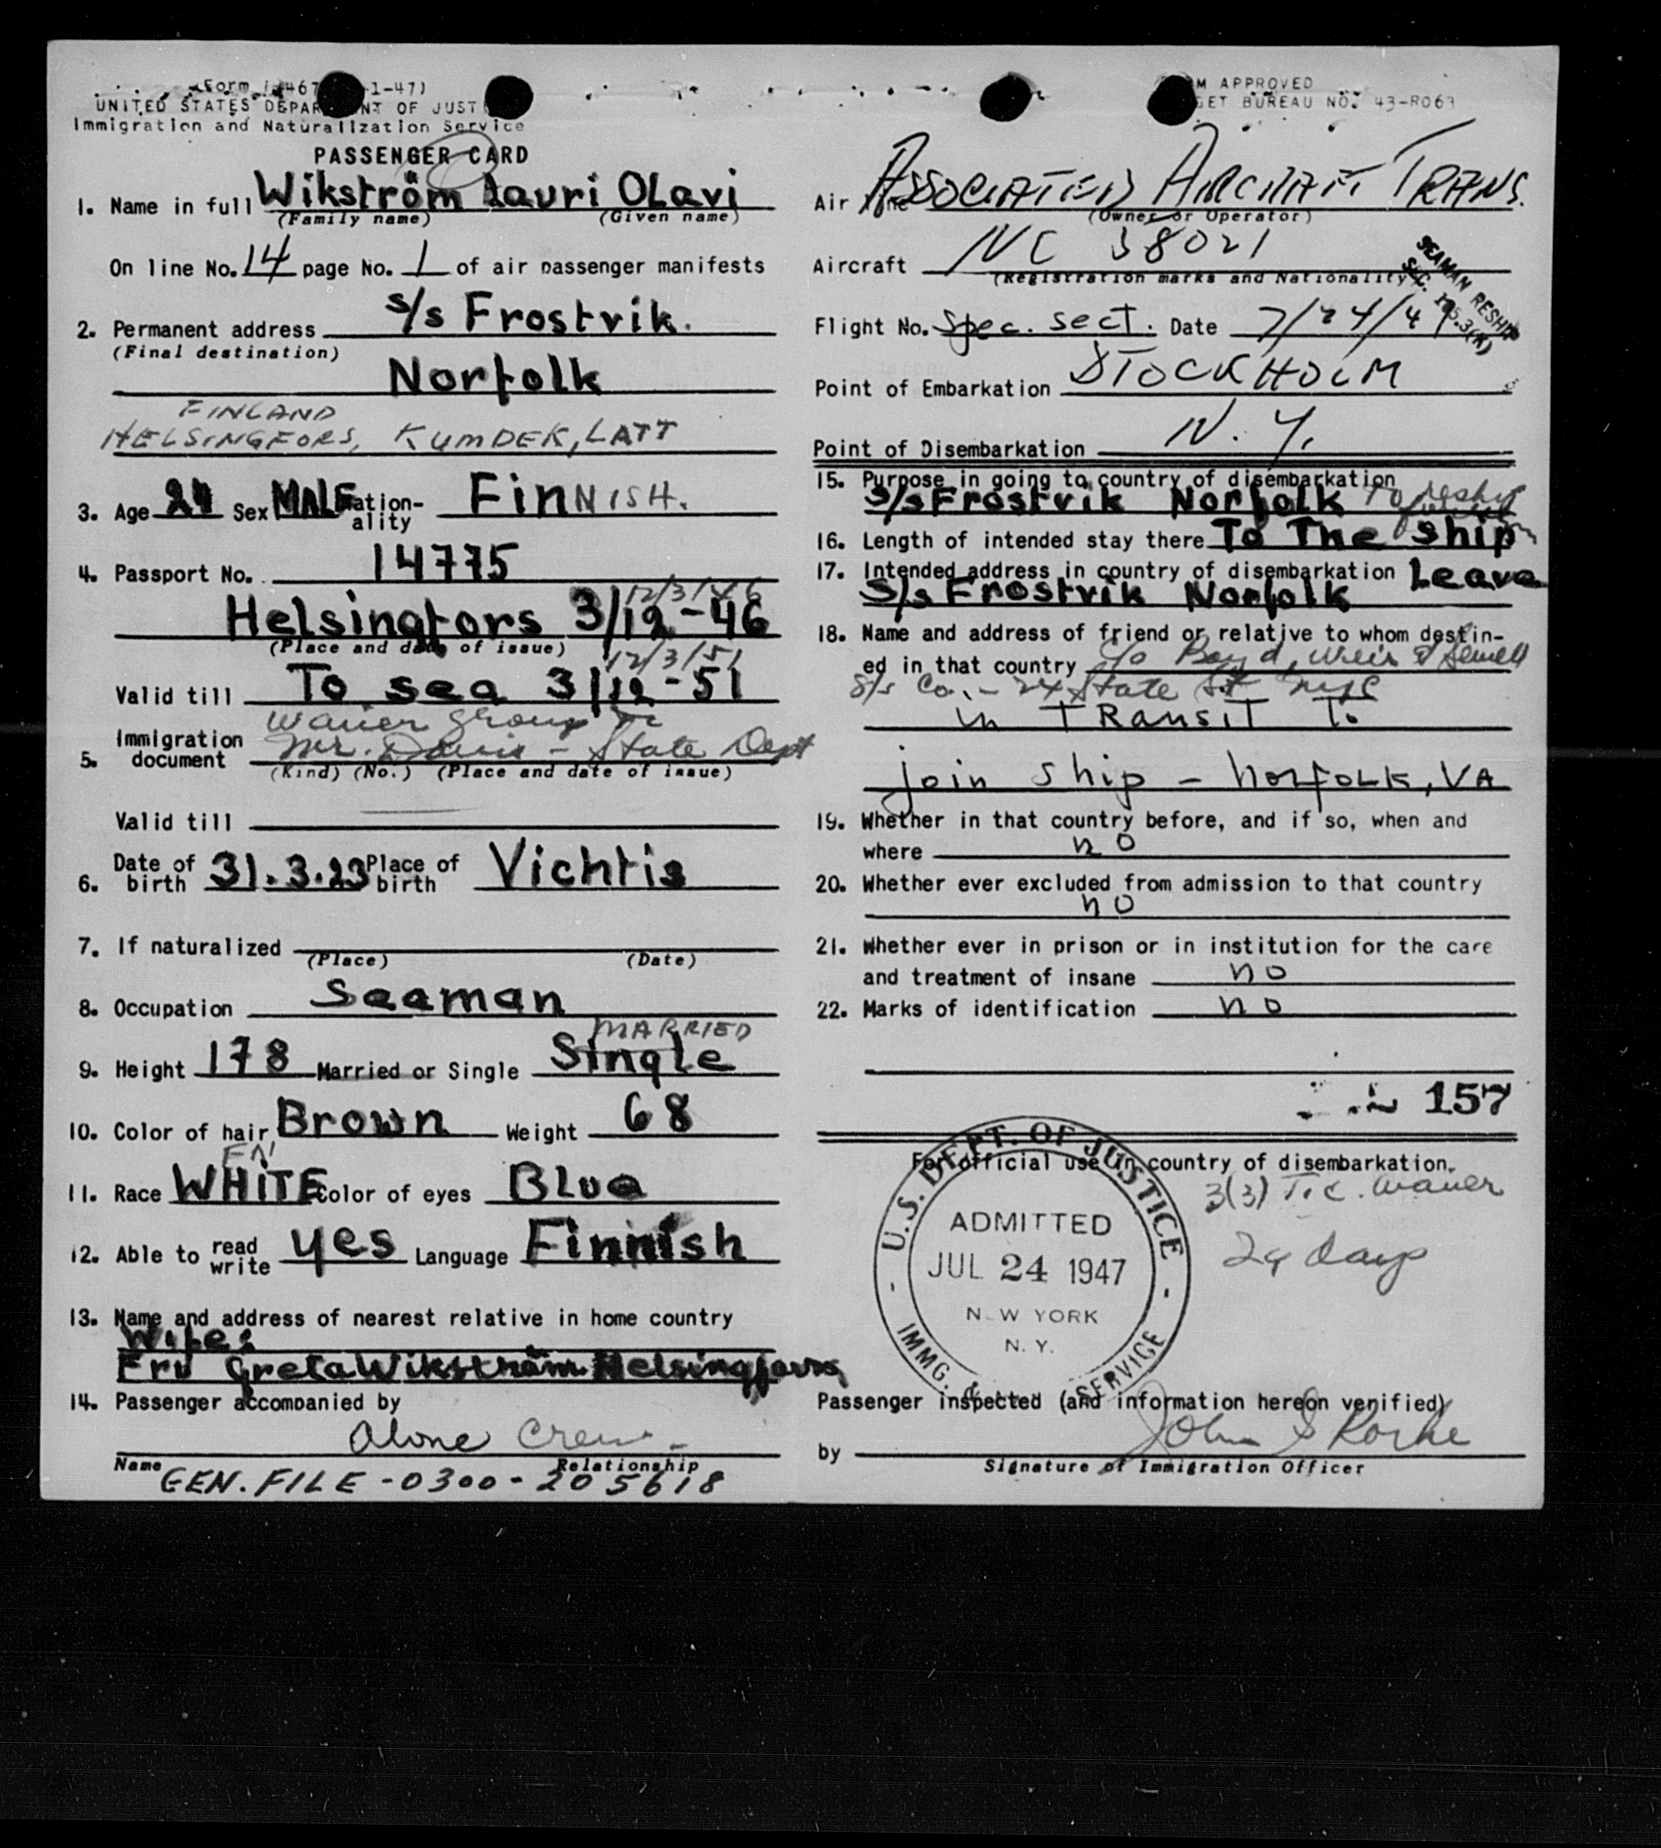 (Form I-467 1-47)
UNITED STATES DEPARTMENT OF JUSTICE
Immigration and Naturalization Service
PASSENGER CARD
1. Name in full Wikström Lauri OLavi
(Family name) (Given name)
On line No. 14 page No. 1 of air passenger manifests
2. Permanent address s/s Frostvik.
(Final destination)
Norfolk
FINLAND
HELSINGFORS, KUMDEK, LATT
3. Age 24 Sex MALE Nation-ality FinNISH.
4. Passport No. 14775
12/3/46
Helsingfors 3/12-46
(Place and date of issue)
12/3/51
Valid till To sea 3/12-51
Waiver group
5. Immigration document Mr. Davis - State Dept
(Kind) (No.) (Place and date of issue)
Valid till
6. Date of birth 31.3.23 Place of birth Vichtis
7. If naturalized
(Place) (Date)
8. Occupation Seaman
MARRIED
9. Height 178 Married or Single Single
10. Color of hair Brown Weight 68
FIN
11. Race WHITE Color of eyes Blue
12. Able to read write yes Language Finnish
13. Name and address of nearest relative in home country
Wife:
Fru Greta Wikström Helsingfors
14. Passenger accompanied by
Alone Crew -
Name Relationship
GEN. FILE - 0300 - 205618
FORM APPROVED
BUDGET BUREAU NO. 43-R063
Air line ASSOCIATED AIRCRAFT TRANS.
(Owner or Operator)
Aircraft NC 38021
(Registration marks and Nationality)
SEAMAN RESHIP
SEC. 175.3(K)
Flight No. Spec. sect. Date 7/24/47
Point of Embarkation STOCKHOLM
Point of Disembarkation N. Y.
15. Purpose in going to country of disembarkation
s/s Frostvik Norfolk To reship
16. Length of intended stay there To The ship
17. Intended address in country of disembarkation Leave
S/s Frostvik Norfolk
18. Name and address of friend or relative to whom destin-
ed in that country c/o Boyd, Weir & Sewell
S/s Co. - 24 State St NYC
in TRansiT To
join ship - NorfoLK, VA
19. Whether in that country before, and if so, when and
where no
20. Whether ever excluded from admission to that country
no
21. Whether ever in prison or in institution for the care
and treatment of insane no
22. Marks of identification no
157
For official use in country of disembarkation.
3(3) T.C. Waiver
29 days
U.S. DEPT. OF JUSTICE
ADMITTED
JUL 24 1947
NEW YORK
N. Y.
IMMG. & SERVICE
Passenger inspected (and information hereon verified)
by John S Rorke
Signature of Immigration Officer